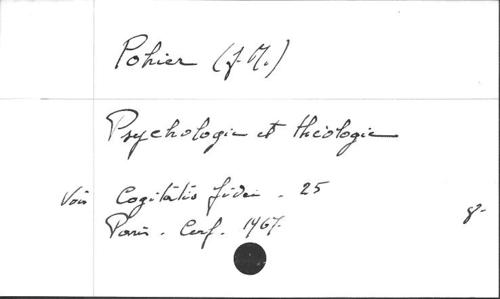 Pohier (J. M.)
Psychologie et théologie
Voir Cogitatio fidei . 25
Paris . Cerf . 1967.
8°